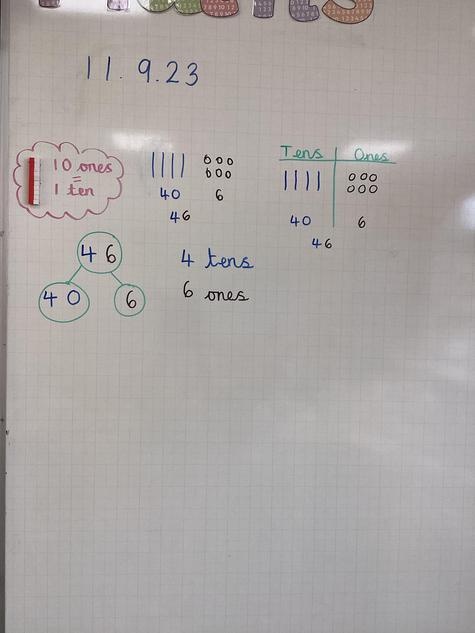 11.9.23
10 ones
=
1 ten
40 6
46
Tens Ones
40 6
46
46
40 6
4 tens
6 ones